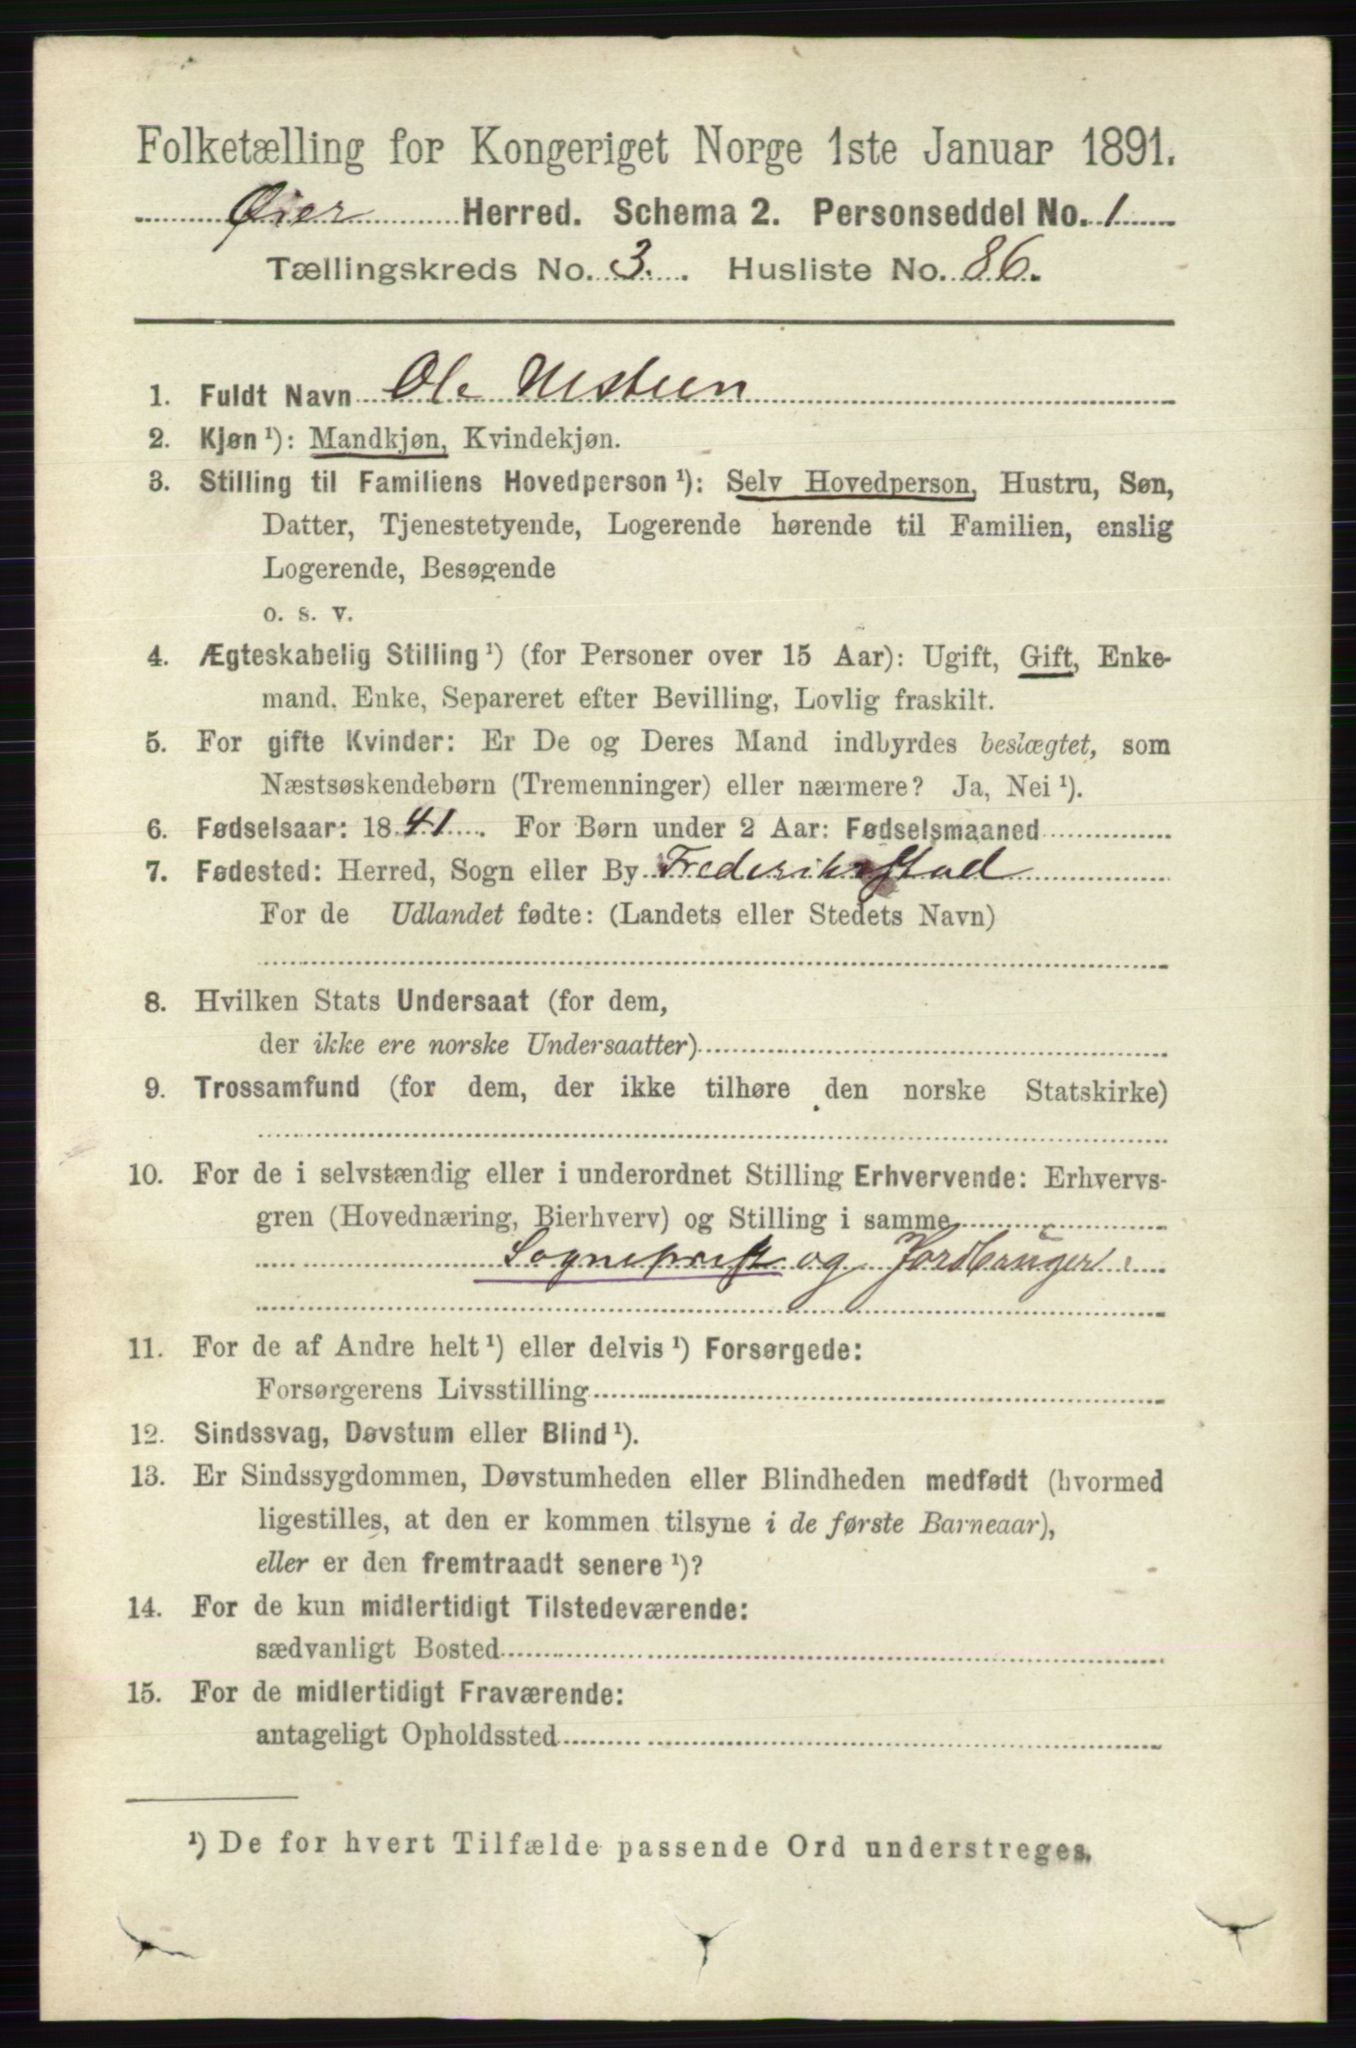 Folketælling for Kongeriget Norge 1ste Januar 1891.
Øier Herred. Schema 2. Personseddel No. 1
Tællingskreds No. 3. Husliste No. 86.
1. Fuldt Navn Ole
2. Kjøn ¹): Mandkjøn, Kvindekjøn.
3. Stilling til Familiens Hovedperson ¹): Selv Hovedperson, Hustru, Søn,
Datter, Tjenestetyende, Logerende hørende til Familien, enslig
Logerende, Besøgende
o. s. v.
4. Ægteskabelig Stilling ¹) (for Personer over 15 Aar): Ugift, Gift, Enke-
mand, Enke, Separeret efter Bevilling, Lovlig fraskilt.
5. For gifte Kvinder: Er De og Deres Mand indbyrdes beslægtet, som
Næstsøskendebørn (Tremenninger) eller nærmere? Ja, Nei ¹).
6. Fødselsaar: 1841. For Børn under 2 Aar: Fødselsmaaned
7. Fødested: Herred, Sogn eller By Frederikstad
For de Udlandet fødte: (Landets eller Stedets Navn)
8. Hvilken Stats Undersaat (for dem,
der ikke ere norske Undersaatter)
9. Trossamfund (for dem, der ikke tilhøre den norske Statskirke)
10. For de i selvstændig eller i underordnet Stilling Erhvervende: Erhvervs-
gren (Hovednæring, Bierhverv) og Stilling i samme
Sogneprest og Jordbruger
11. For de af Andre helt ¹) eller delvis ¹) Forsørgede:
Forsørgerens Livsstilling
12. Sindssvag, Døvstum eller Blind ¹).
13. Er Sindssygdommen, Døvstumheden eller Blindheden medfødt (hvormed
ligestilles, at den er kommen tilsyne i de første Barneaar),
eller er den fremtraadt senere ¹)?
14. For de kun midlertidigt Tilstedeværende:
sædvanligt Bosted
15. For de midlertidigt Fraværende:
antageligt Opholdssted
¹) De for hvert Tilfælde passende Ord understreges.